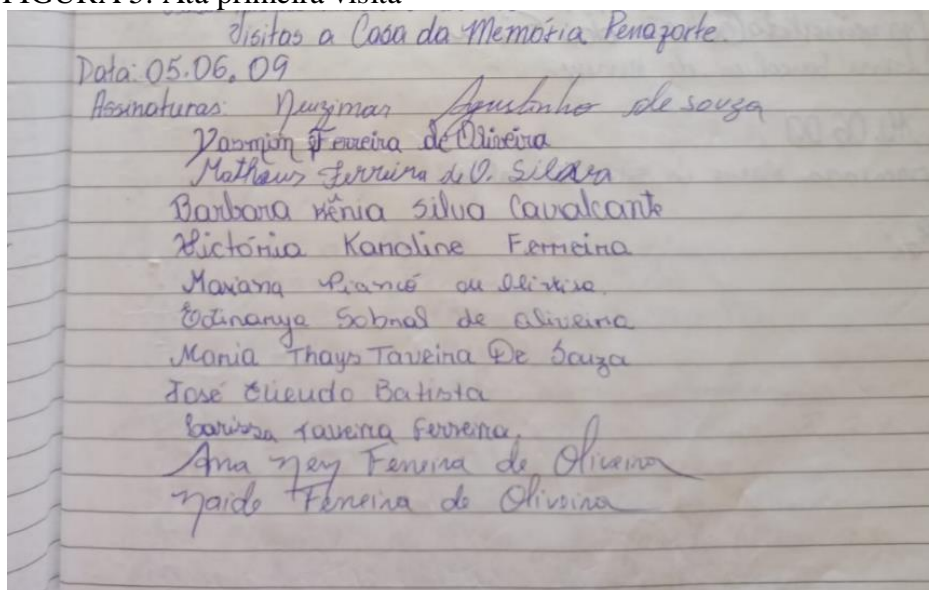 FIGURA 3: Ata primeira visita
Visitas a Casa da Memória Penaforte
Data: 05.06.09
Assinaturas: Neuzimar Agustinho de souza
Yasmim Ferreira de Oliveira
Matheus Ferreira de O. Silva
Barbara Kênia Silva Cavalcante
Victória Karoline Ferreira
Mariana Piancó
Edinanya Sobral de oliveira
Maria Thays Taveira De Souza
José Batista
Larissa Taveira Ferreira.
Ana Ney Ferreira de Oliveira
Naide Ferreira de Oliveira